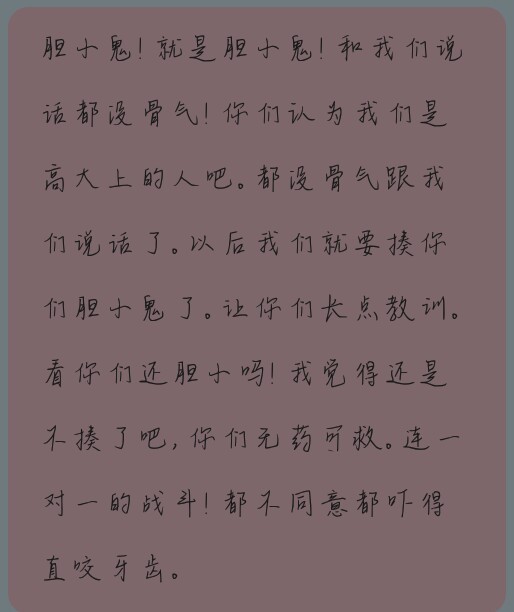 胆小鬼!就是胆小鬼!和我们说
话都没骨气!你们认为我们是
高大上的人吧。都没骨气跟我
们说话了。以后我们就要揍你
们胆小鬼了。让你们长点教训。
看你们还胆小吗!我觉得还是
不揍了吧,你们无药可救。连一
对一的战斗!都不同意都吓得
直咬牙齿。